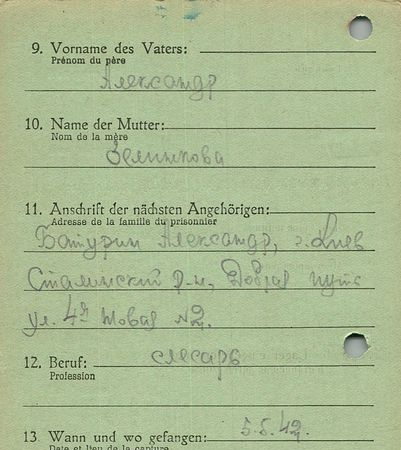 9. Vorname des Vaters:
Prénom du père
Александр
10. Name der Mutter:
Nom de la mère
Зелинкова
11. Anschrift der nächsten Angehörigen:
Adresse de la famille du prisonnier
Батурин Александр, г. Киев
Сталинский р-н, Добрая путь
ул. 4я Новая № 2.
12. Beruf: слесарь
Profession
13. Wann und wo gefangen: 5.5.42.
Date et lieu de la capture